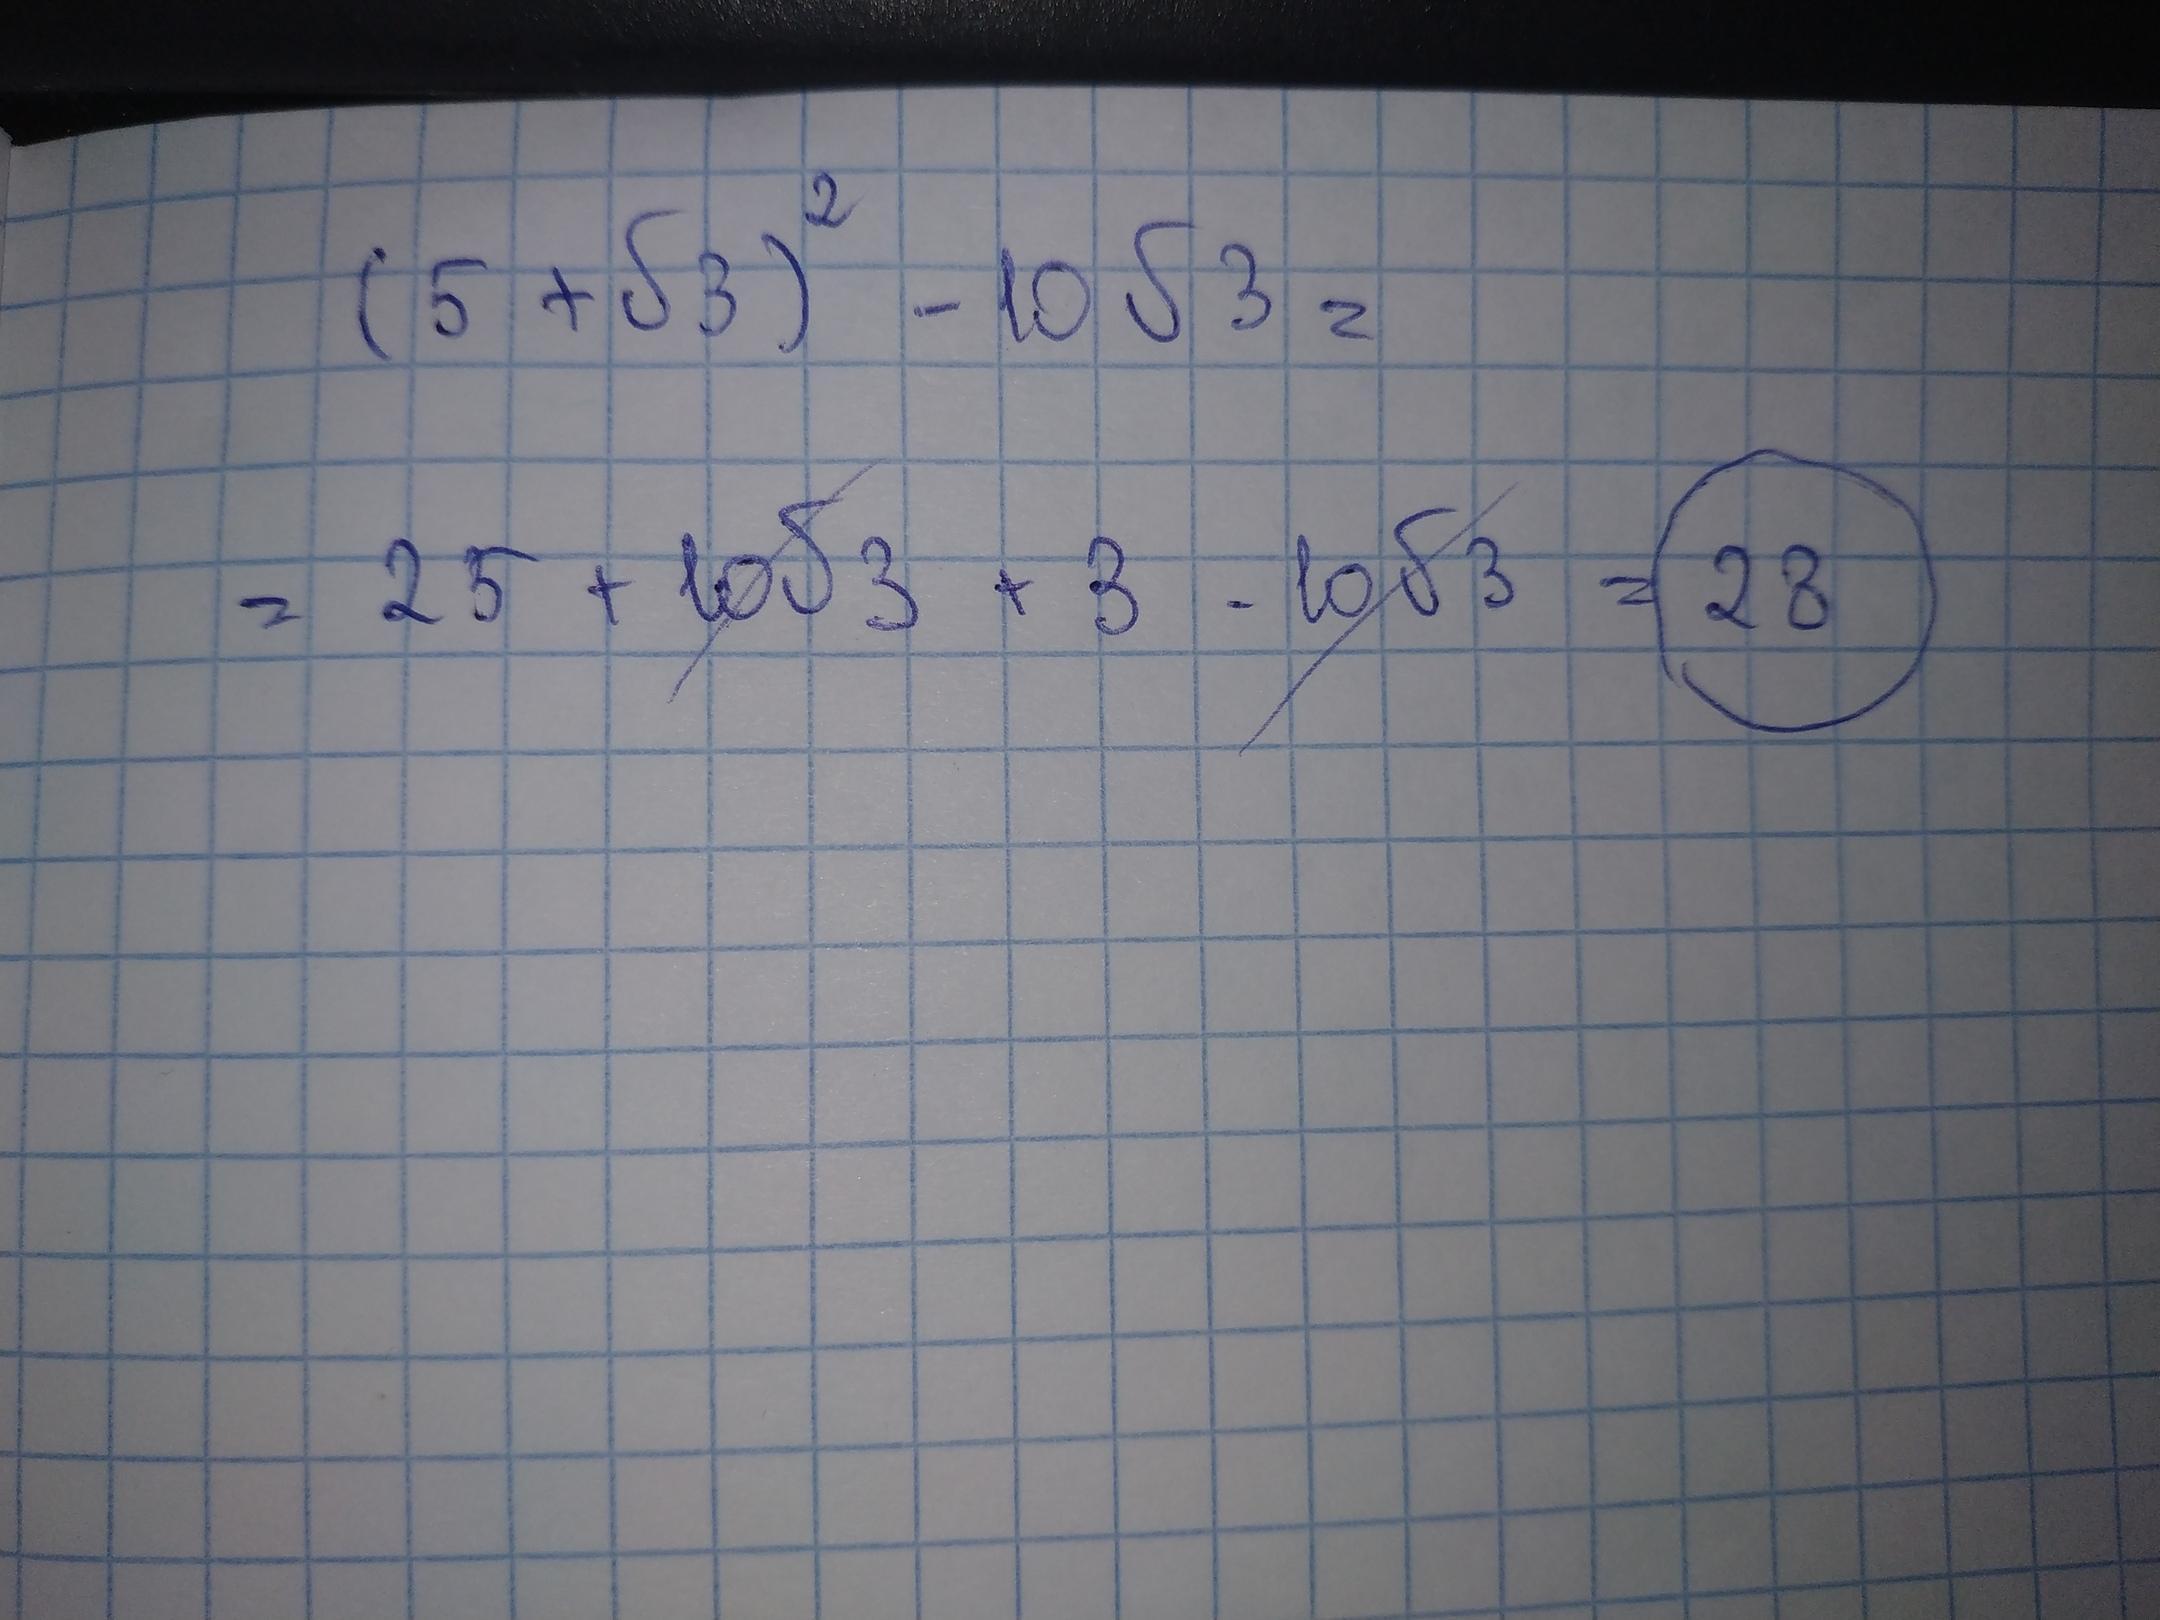 (5 + √3)² - 10√3 =
= 25 + 10√3 + 3 - 10√3 = 28